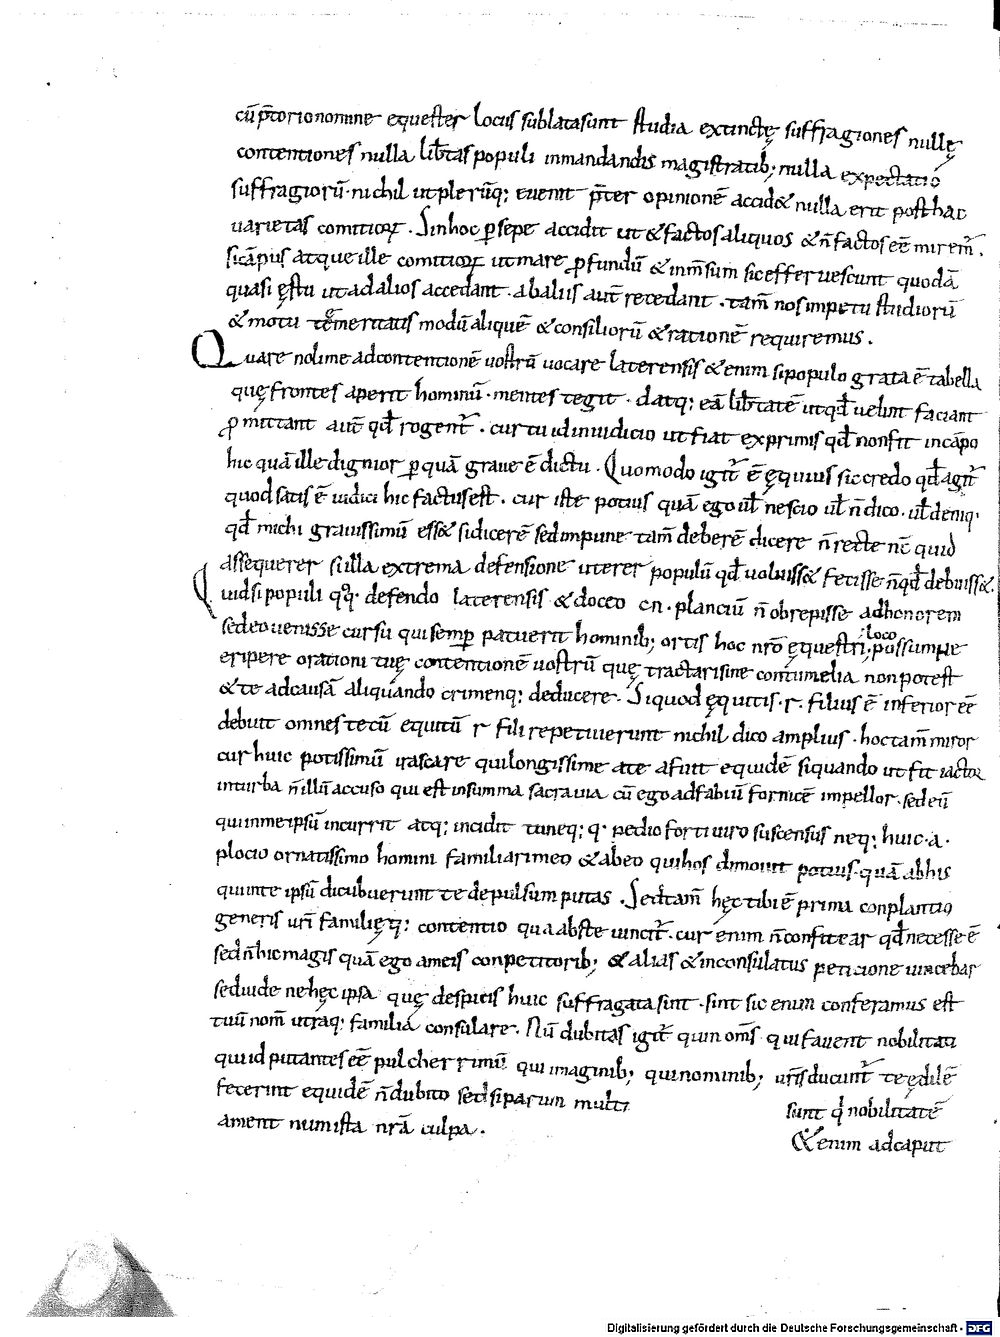 cū p̄torio nomine equester locus sublata sunt studia extinctę suffragiones nullę
contentiones nulla lib̄tas populi in mandandis magistratib; nulla expectatio
suffragiorū· nichil ut plerūq; euenit p̄ter opinionē accid& nulla erit posthac
uarietas comitioꝝ. Sin hoc ꝑsepe accidit ut & factos aliquos & n̄ factos eē miremr̄.
si cāpus atque ille comitioꝝ ut mare ꝓfundū & inm̄sum sic efferuescunt quodā
quasi ęstu ut ad alios accedant. ab aliis aut̄ recedant. tam̄ nos impetu studiorū
& motu temeritatis modū aliquē & consiliorū & rationē requiremus.
Quare noli me ad contentionē uostrū uocare laterensis & enim si populo grata ē tabella
quę frontes aperit hominū· mentes tegit. datq; eā lib̄tatē ut qd̄ uelint faciant
ꝓmittant aut̄ qd̄ rogent̄. cur tu id in iudicio ut fiat exprimis qd̄ non fit in cāpo
hic quā ille dignior ꝑquā graue ē dictu. Quomodo igit̄ ē ęquius sic credo qd̄ agit̄
quod satis ē iudici hic factus est. cur iste potius quā ego ul̄ nescio ul̄ n̄ dico. ul̄ deniq;
qd̄ michi grauissimū ess& si dicerē sed inpune tam̄ deberē dicere n̄ recte nē quid
assequerer si illa extrema defensione uterer populū qd̄ uoluiss& fecisse n̄ qd̄ debuiss&.
Quid si populi qq̨· defendo laterensis & doceo cn. planciū n̄ obrepisse ad honorem
sed eo uenisse cursu qui semꝑ patuerit hominib; ortis hoc nr̄o ęquestri loco possumne
eripere orationi tuę contentionē uostrū quę tractari sine contumelia non potest
& te ad causā aliquando crimenq; deducere. Si quod ęquitis. r. filius ē inferior eē
debuit omnes tecū equitū r fili repetiuerunt nichil dico amplius. hoc tam̄ miror
cur huic potissimū irascare qui longissime a te afuit equidē siquando ut fit iactor
in turba n̄ illū accuso qui est in summa sacra uia cū ego ad fabiū fornicē impellor. sed eū
qui in me ipsū incurrit atq; incidit tu neq; q· pedio forti uiro suscensus neq; huic. a.
plocio ornatissimo homini familiari meo & ab eo qui hos dimouit potius. quā ab his
qui in te ipsū dicubuerunt te depulsum putas. Sed tam̄ hęc tibi ē prima con plantio
generis uri familięq; contentio qua abs te uincit̄. cur enim n̄ confitear qd̄ necesse ē
sed n̄ hic magis quā ego a meis conpetitorib; & alias & in consulatus peticione uincebar
sed uide ne hęc ipsa quę despicis huic suffragata sint. sint sic enim conferamus est
tuū nom̄ utraq; familia consulare. Nū dubitas igit̄ quin oms̄ qui fauent nobilitati
qui id putant esse pulcherrimū qui imaginib; qui nominib; uris̄ ducunt̄ te ędilē
fecerint equidē n̄ dubito sed si parum multi sunt q̄ nobilitatē
ament num ista nr̄a culpa. &enim ad caput
Digitalisierung gefördert durch die Deutsche Forschungsgemeinschaft - DFG